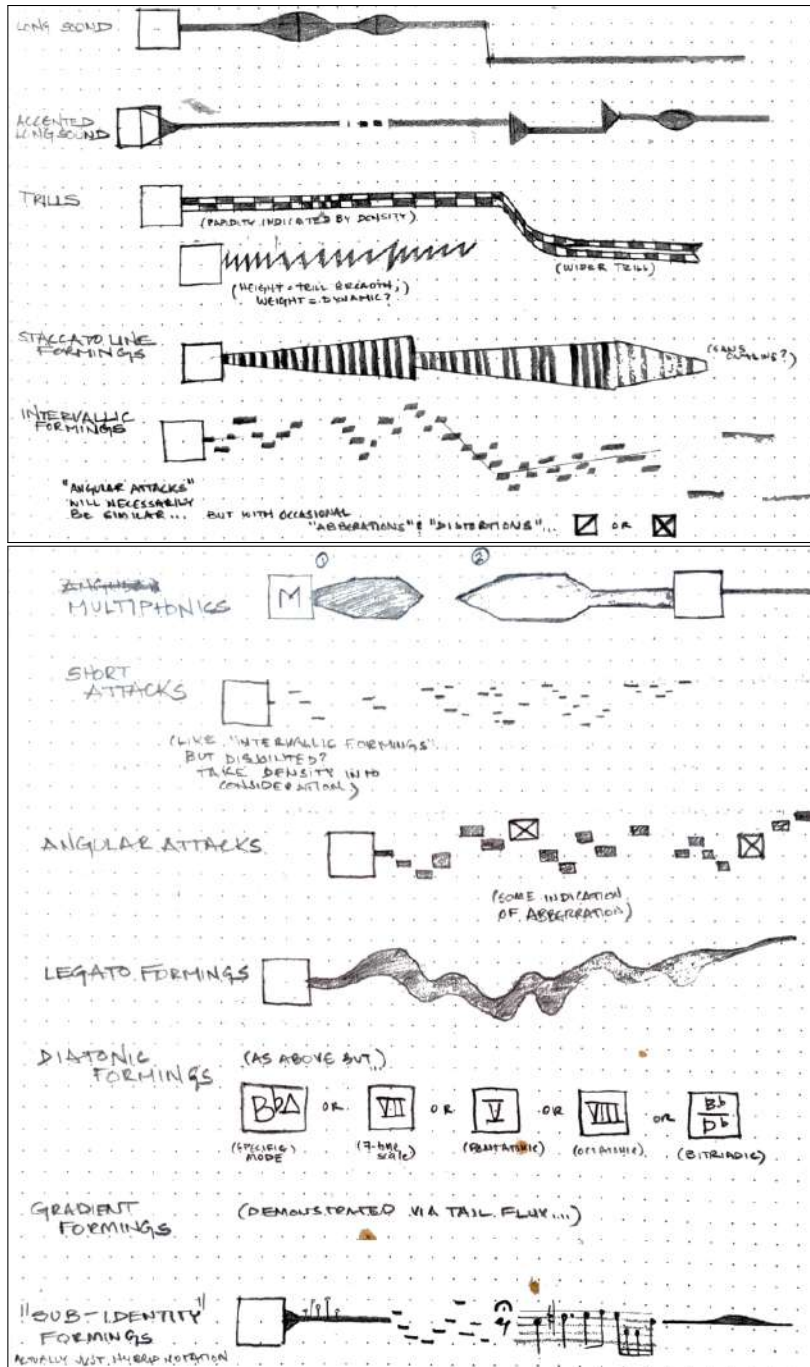 LONG SOUND
ACCENTED
LONG SOUND
TRILLS
(RAPIDITY INDICATED BY DENSITY)
(WIDER TRILL)
(HEIGHT = TRILL BREADTH;
WEIGHT = DYNAMIC?
STACCATO LINE
FORMINGS
(SANS
OUTLINE?)
INTERVALLIC
FORMINGS
"ANGULAR ATTACKS"
WILL NECESSARILY
BE SIMILAR... BUT WITH OCCASIONAL
"ABBERATIONS" & "DISTORTIONS"... OR
① ②
MULTIPHONICS
M
SHORT
ATTACKS
(LIKE "INTERVALLIC FORMINGS"
BUT DISJOINTED?
TAKE DENSITY INTO
CONSIDERATION)
ANGULAR ATTACKS
(SOME INDICATION
OF ABBERRATION)
LEGATO FORMINGS
DIATONIC
FORMINGS
(AS ABOVE BUT)
B♭Δ OR VII OR V OR VIII OR B♭/D♭
(SPECIFIC)
MODE
(7-tone
scale)
(PENTATONIC)
(OCTATONIC)
(BITRIADIC)
GRADIENT
FORMINGS
(DEMONSTRATED VIA TAIL FLUX...)
"SUB-IDENTITY"
FORMINGS
ACTUALLY JUST HYBRID NOTATION